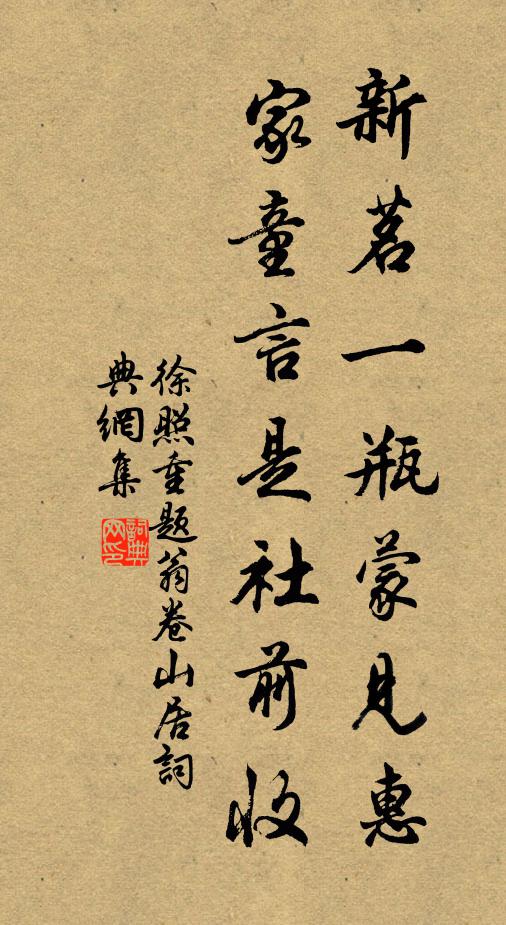 新茗一瓶蒙見惠
家童言是社前收
徐照重題翁卷山居詞
典網集
詞典網印